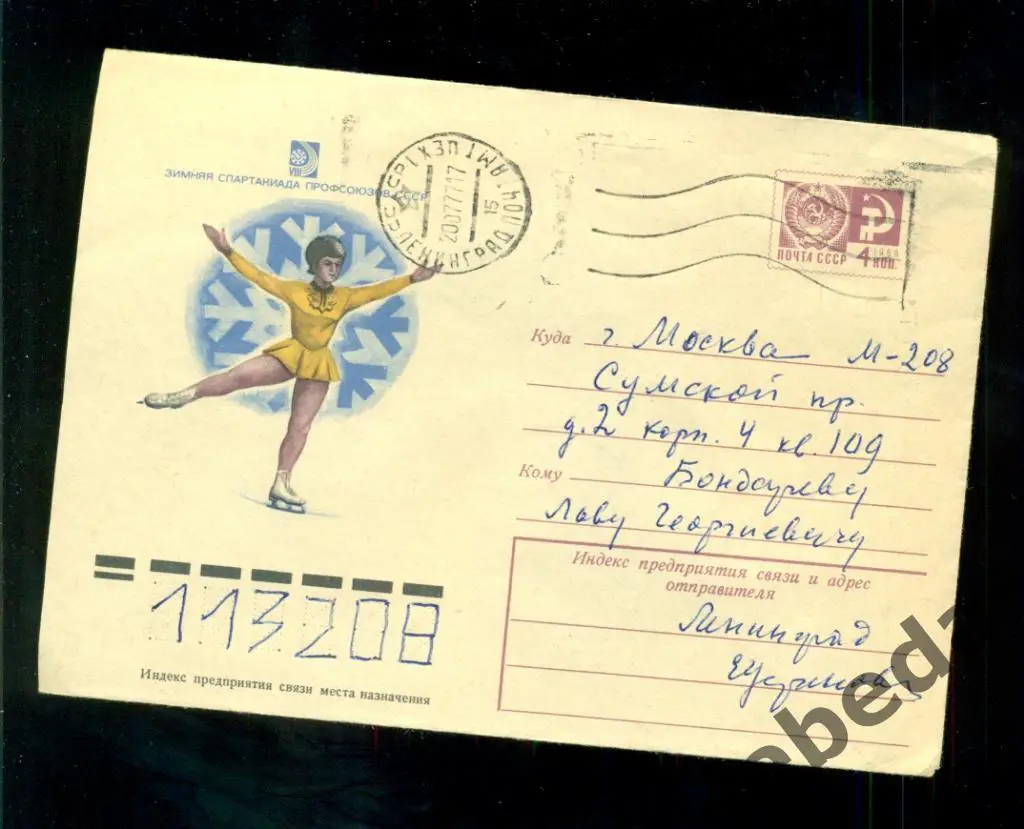 VIII
ЗИМНЯЯ СПАРТАКИАДА ПРОФСОЮЗОВ СССР
ЛЕНИНГРАД ПОЧТАМТ
200777 17
15
ПОЧТА СССР
1966
4 КОП.
Куда г. Москва М-208
Сумской пр.
д.2 корп. 4 кв. 109
Кому
Георгиевичу
Индекс предприятия связи и адрес
отправителя
Ленинград
113208
Индекс предприятия связи места назначения